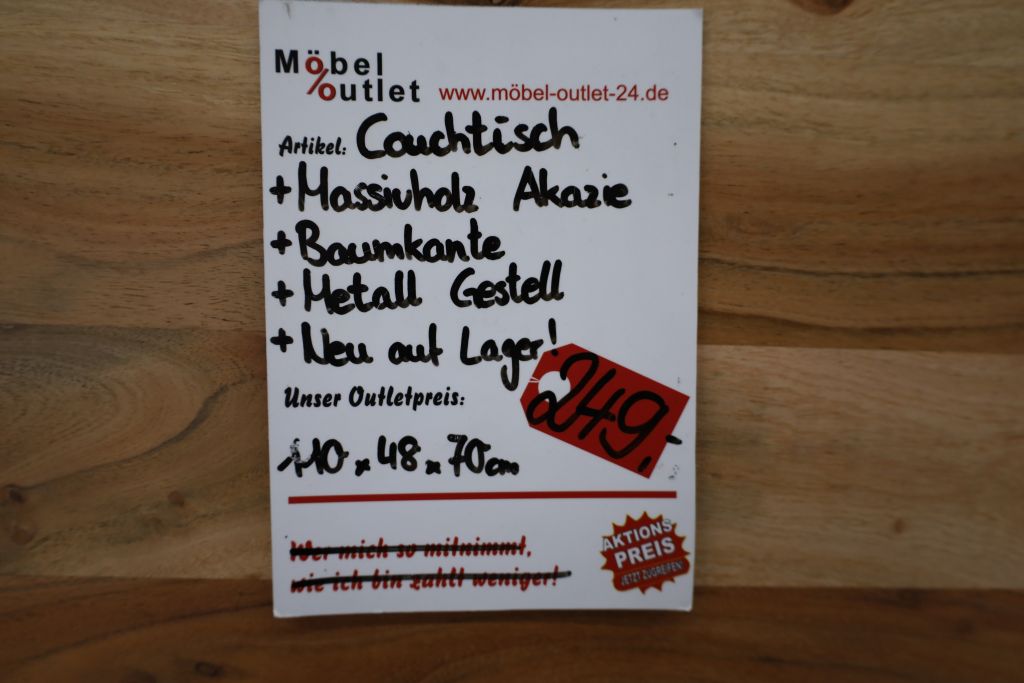 Möbel
%outlet www.möbel-outlet-24.de
Artikel: Couchtisch
+ Massivholz Akazie
+ Baumkante
+ Metall Gestell
+ Neu auf Lager!
Unser Outletpreis:
249,-
110 x 48 x 70cm
Wer mich so mitnimmt,
wie ich bin zahlt weniger!
AKTIONS
PREIS
JETZT ZUGREIFEN!